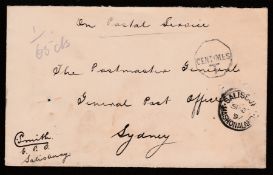 On Postal Service
1/-
65 cts
CENTIMES
The Postmaster General
General Post Office
Sydney
SALISBURY
MASHONALAND
Smith
Salisbury